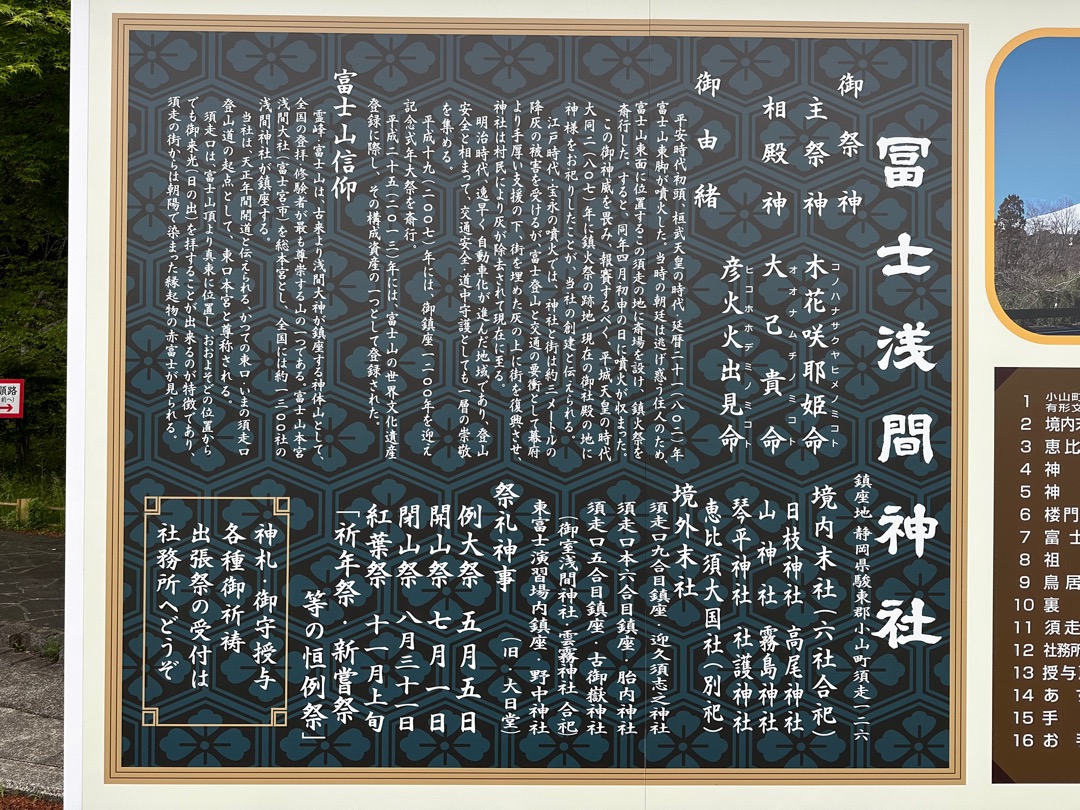 冨士浅間神社
鎮座地 静岡県駿東郡小山町須走一二六
御祭神
主祭神 木花咲耶姫命
コノハナサクヤヒメノミコト
相殿神 大己貴命
オオナムチノミコト
彦火火出見命
ヒコホホデミノミコト
御由緒
平安時代初頭、桓武天皇の時代、延暦二十一(八〇二)年
富士山東脚が噴火した。当時の朝廷は逃げ惑う住人のため、
富士山東面に位置するこの須走の地に斎場を設け、鎮火祭を
斎行した。すると、同年四月初申の日に噴火が収まった。
この御神威を畏み、報賽するべく、平城天皇の時代
大同二(八〇七)年に鎮火祭の跡地(現在の御社殿の地)に
神様をお祀りしたことが、当社の創建と伝えられる。
江戸時代、宝永の噴火では、神社と街は約三メートルの
降灰の被害を受けるが、富士登山と交通の要衝として幕府
より手厚い支援の下、街を埋めた灰の上に街を復興させ、
神社は村民により灰が除去されて現在に至る。
明治時代、逸早く自動車化が進んだ地域であり、登山
安全と相まって、交通安全・道中守護としても一層の崇敬
を集める。
平成十九(二〇〇七)年には、御鎮座一二〇〇年を迎え
記念式年大祭を斎行。
平成二十五(二〇一三)年には、富士山の世界文化遺産
登録に際し、その構成資産の一つとして登録された。
富士山信仰
霊峰・富士山は、古来より浅間大神が鎮座する神体山として、
全国の登拝・修験者が最も尊崇する山の一つである。富士山本宮
浅間大社(富士宮市)を総本宮とし、全国には約一三〇〇社の
浅間神社が鎮座する。
当社は、天正年間開道と伝えられる、かつての東口・いまの須走口
登山道の起点として、東口本宮と尊称される。
須走口は、富士山頂より真東に位置し、おおよそどの位置から
でも御来光(日の出)を拝することが出来るのが特徴であり、
須走の街からは朝陽で染まった縁起物の赤富士が見られる。
境内末社(六社合祀)
日枝神社 高尾神社
山神社 霧島神社
琴平神社 社護神社
恵比須大国社(別祀)
境外末社
須走口九合目鎮座・迎久須志之神社
須走口本六合目鎮座・胎内神社
須走口五合目鎮座・古御嶽神社
(御室浅間神社・雲霧神社 合祀)
東富士演習場内鎮座・野中神社
(旧・大日堂)
祭礼神事
例大祭 五月五日
開山祭 七月一日
閉山祭 八月三十一日
紅葉祭 十一月上旬
「祈年祭・新嘗祭
等の恒例祭」
神札・御守授与
各種御祈祷
出張祭の受付は
社務所へどうぞ
順路
1 小山町
有形文
2 境内
3 恵比
4 神
5 神
6 楼門
7 富士
8 祖
9 鳥居
10 裏
11 須走
12 社務所
13 授与
14 あ
15 手
16 お